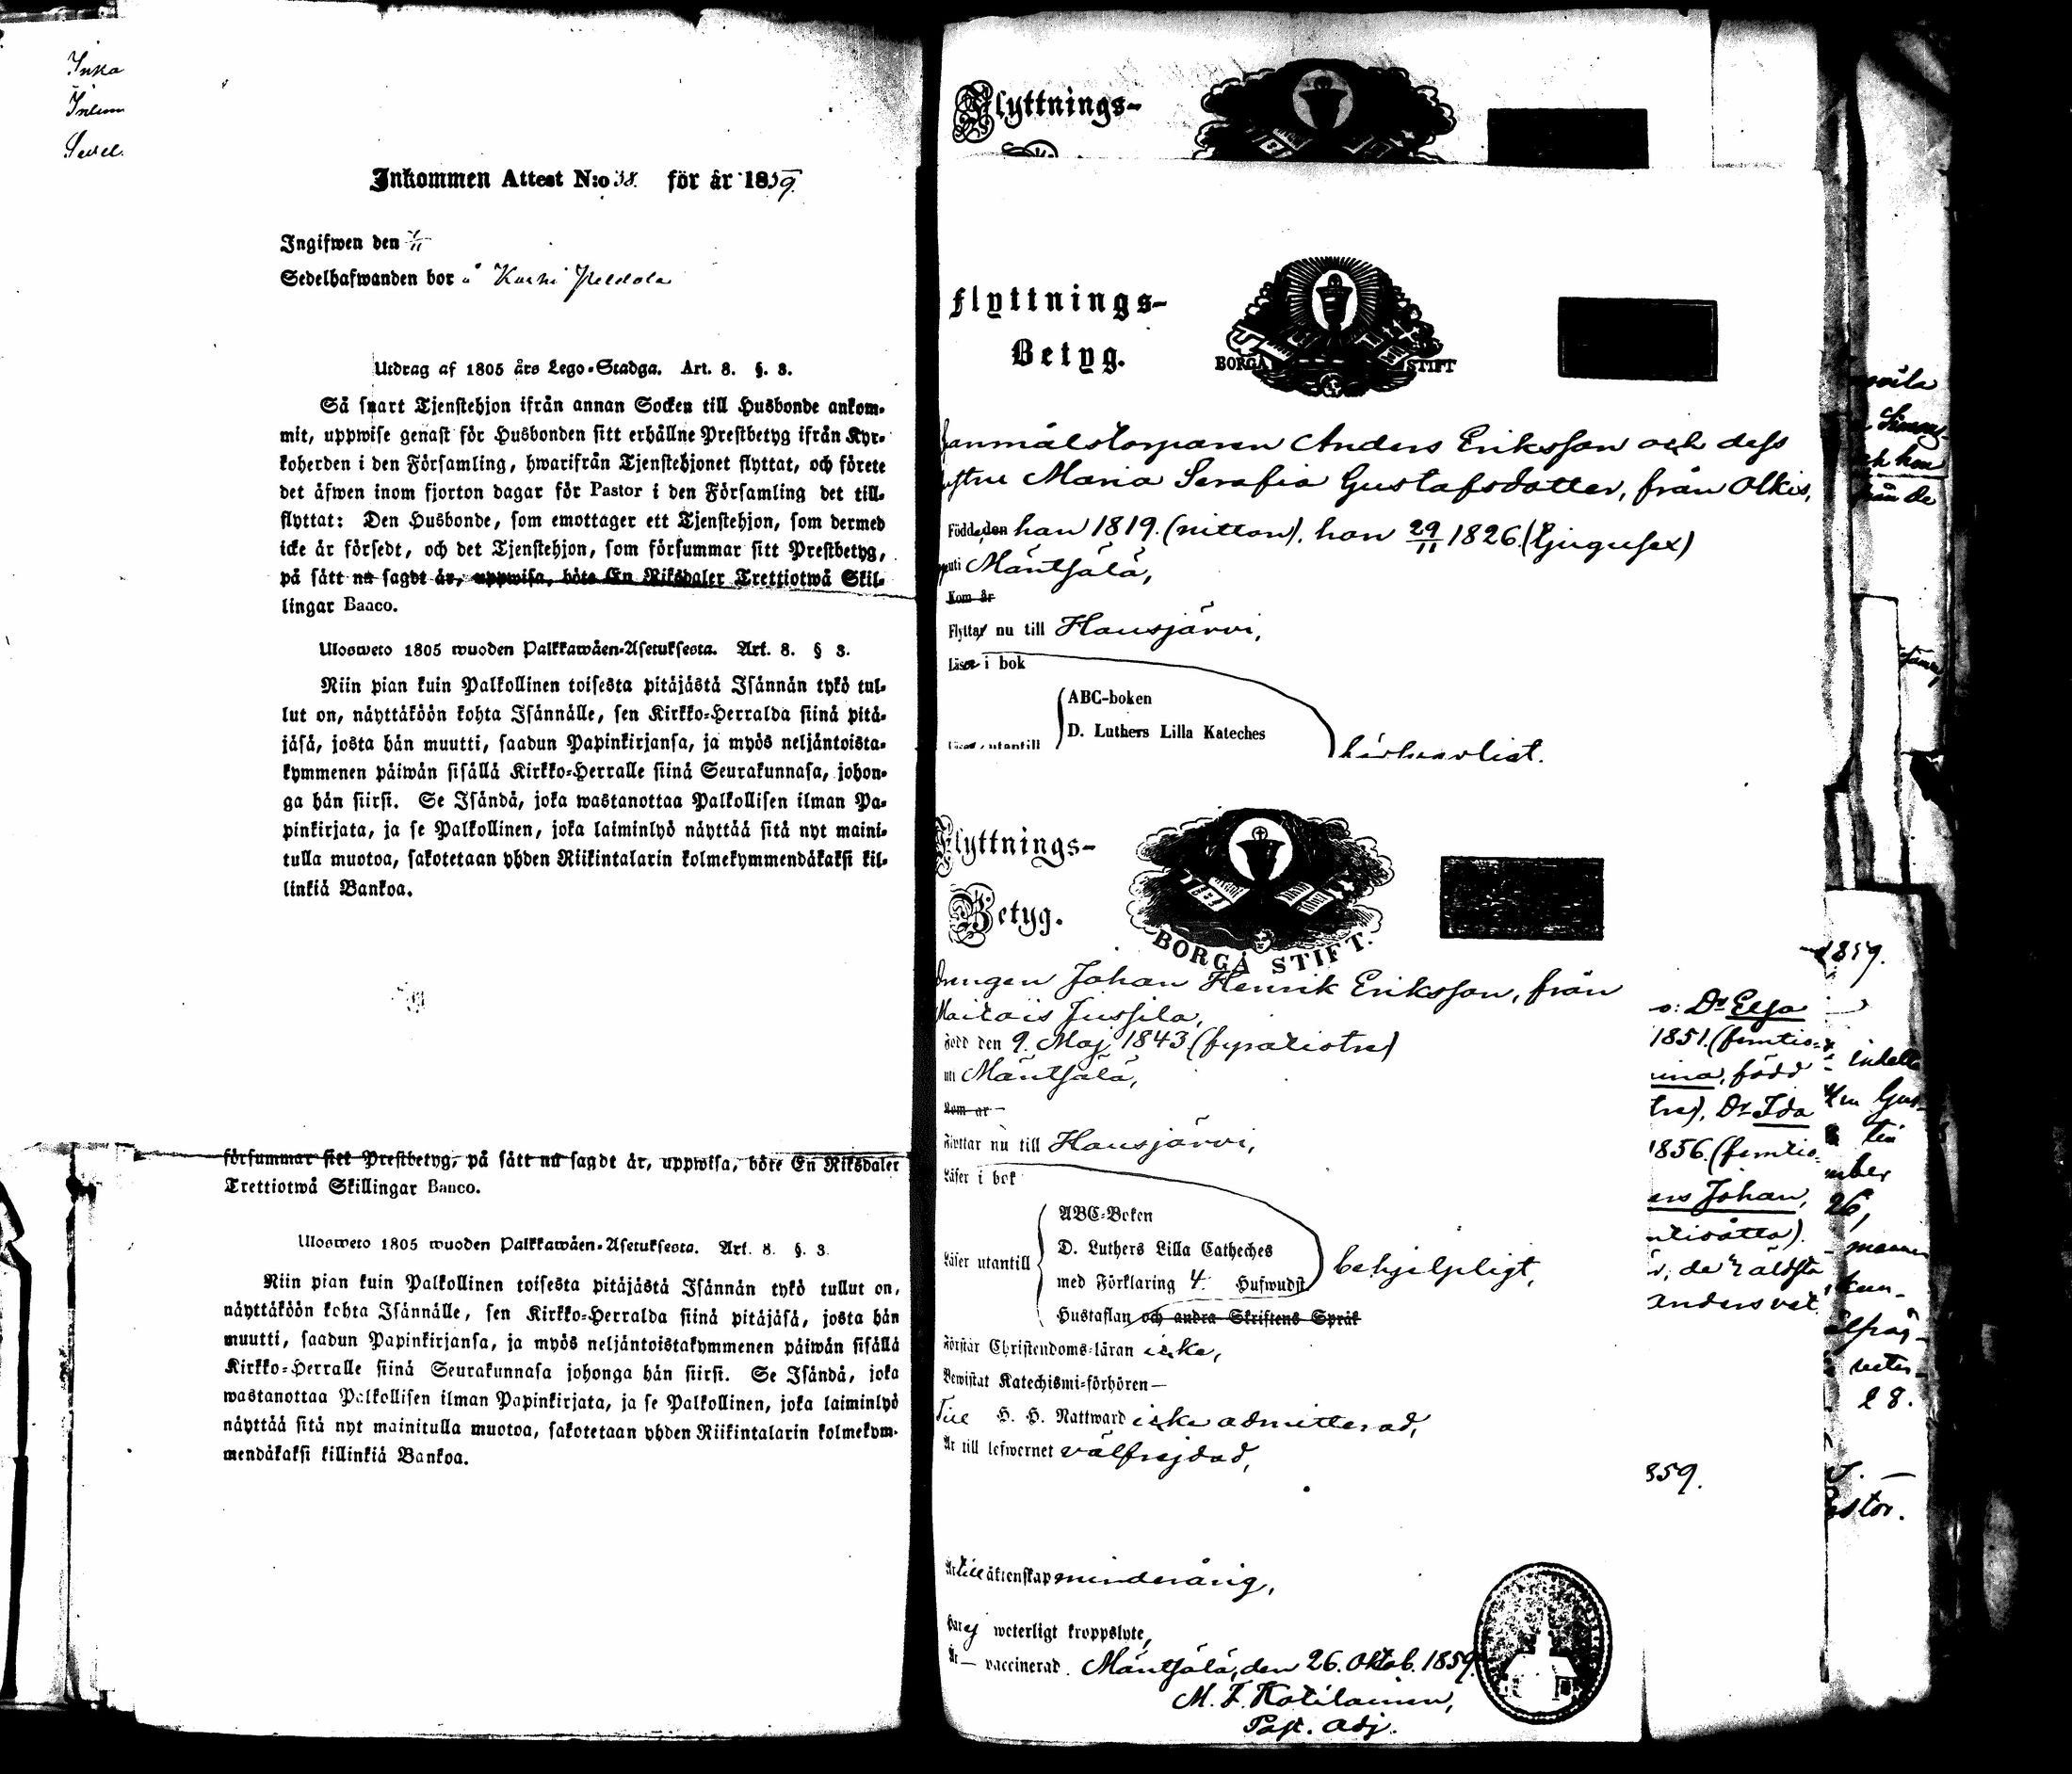 Inka
Inlem
Sedel.
Inkommen Attest N:o 38. för år 1859.
Ingifwen den
Sedelhafwanden bor å Karhi Peldola
Utdrag af 1805 års Lego-Stadga. Art. 8. §. 8.
Så snart Tjenstehjon ifrån annan Socken till Husbonde ankom-
mit, uppwise genast för Husbonden sitt erhållne Prestbetyg ifrån Kyr-
koherden i den Församling, hwarifrån Tjenstehjonet flyttat, och förete
det äfwen inom fjorton dagar för Pastor i den Församling det till-
flyttat: Den Husbonde, som emottager ett Tjenstehjon, som dermed
icke är försedt, och det Tjenstehjon, som försummar sitt Prestbetyg,
på sätt nu sagdt är, uppwisa, böte En Riksdaler Trettiotwå Skil-
lingar Banco.
Ulosweto 1805 wuoden Palkkawäen-Asetuksesta. Art. 8. § 8.
Niin pian kuin Palkollinen toisesta pitäjästä Isännän tykö tul-
lut on, näyttäköön kohta Isännälle, sen Kirkko-Herralda siinä pitä-
jäsä, josta hän muutti, saadun Papinkirjansa, ja myös neljäntoista-
kymmenen päiwän sisällä Kirkko-Herralle siinä Seurakunnasa, johon-
ga hän siirsi. Se Isändä, joka wastanottaa Palkollisen ilman Pa-
pinkirjata, ja se Palkollinen, joka laiminlyö näyttää sitä nyt maini-
tulla muotoa, sakotetaan yhden Riikintalarin kolmekymmendäkaksi kil-
linkiä Bankoa.
försummar sitt Prestbetyg, på sätt nu sagdt är, uppwisa, böte En Riksdaler
Trettiotwå Skillingar Banco.
Ulosweto 1805 wuoden Palkkawäen-Asetuksesta. Art. 8. §. 3.
Niin pian kuin Palkollinen toisesta pitäjästä Isännän tykö tullut on,
näyttäköön kohta Isännälle, sen Kirkko-Herralda siinä pitäjäsä, josta hän
muutti, saadun Papinkirjansa, ja myös neljäntoistakymmenen päiwän sisällä
Kirkko-Herralle siinä Seurakunnasa johonga hän siirsi. Se Isändä, joka
wastanottaa Palkollisen ilman Papinkirjata, ja se Palkollinen, joka laiminlyö
näyttää sitä nyt mainitulla muotoa, sakotetaan yhden Riikintalarin kolmekym-
mendäkaksi killinkiä Bankoa.
Flyttnings-
Flyttnings-
Betyg.
BORGÅ STIFT
Anders Eriksson och dess
Maria Serafia Gustafsdotter, från Olkis,
Födde den han 1819. (nitton). hon 29/11 1826. (tjugusex)
uti Mäntsälä,
Kom år
Flyttar nu till Hausjärvi,
Läser i bok
ABC-boken
D. Luthers Lilla Kateches
Läser utantill
Flyttnings-
Betyg.
BORGÅ STIFT.
Drengen Johan Henrik Eriksson, från
Jussila,
Född den 9. Maj 1843 (fyratiotre)
uti Mäntsälä,
Kom år
Flyttar nu till Hausjärvi,
Läser i bok
ABC-Boken
D. Luthers Lilla Catheches
Läser utantill
med Förklaring 4. Hufwudst.
behjelpligt,
Hustaflan och andra Skriftens Språk
Förstår Christendoms-läran icke,
Bewistat Katechismi-förhören —
Till H. H. Nattward icke admitterad,
Är till lefwernet välfrejdad,
Är till äktenskap minderårig,
Har ej weterligt kroppslyte,
Är — vaccinerad. Mäntsälä, den 26. Oktob. 1859.
M. F. Kotilainen,
Past. Adj.
Dr Elsa
1851. (femtio-
född
Dr Ida
1856. (femtio-
Johan,
de äldsta
859.
1859.
28.